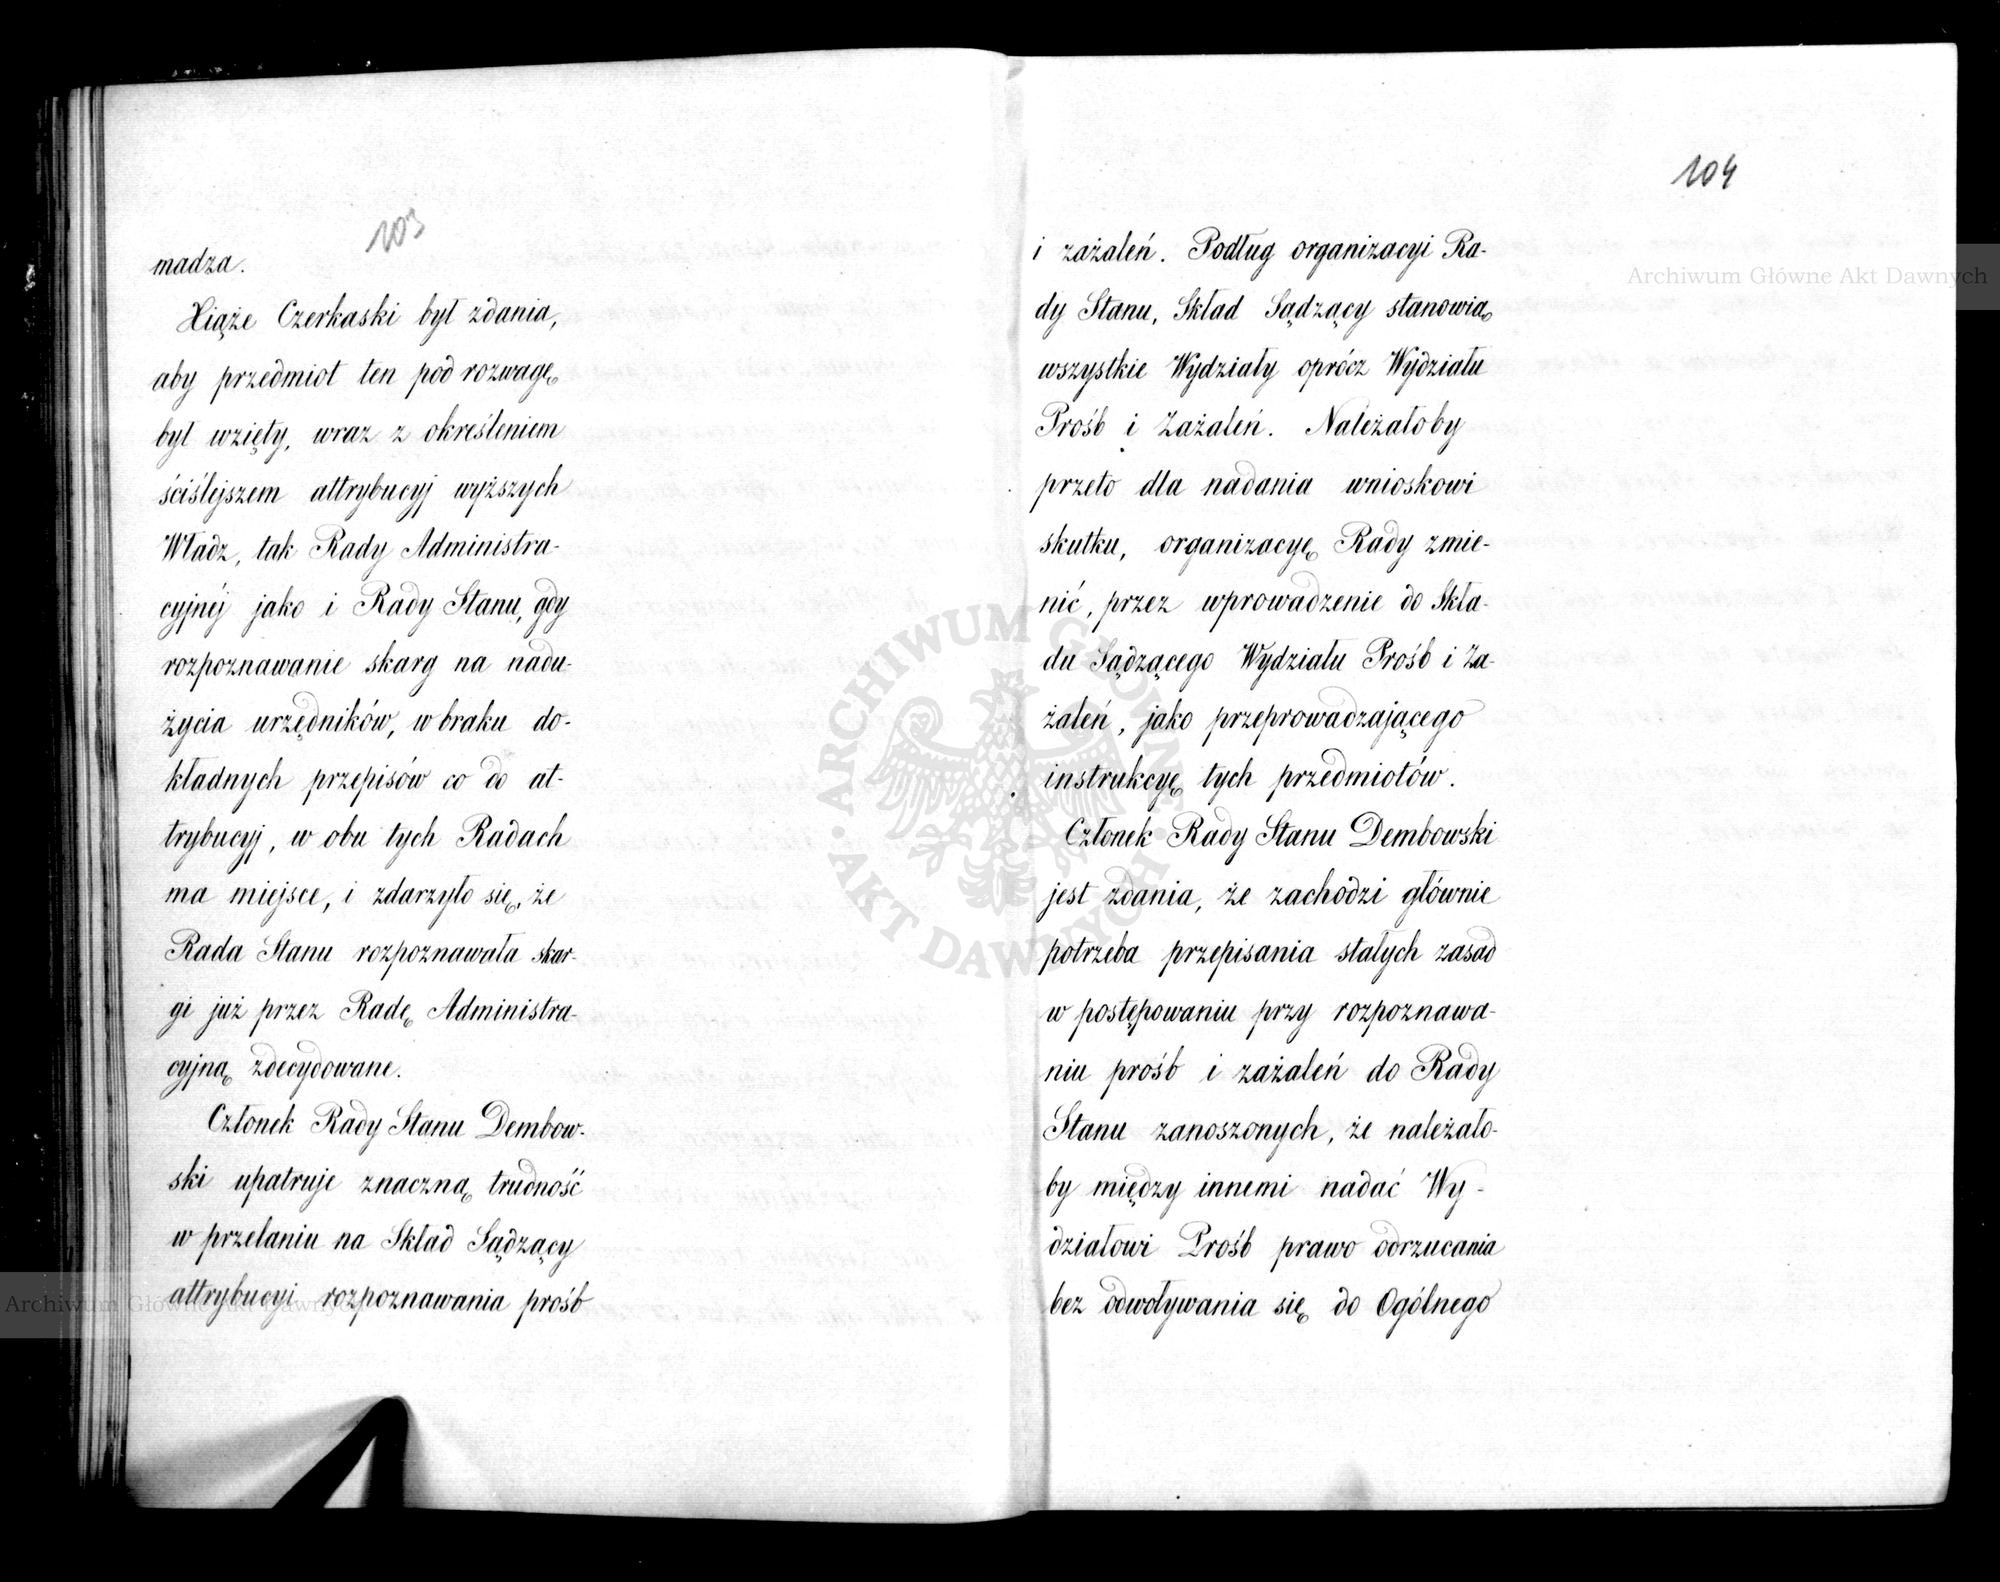 103
madza.
Xiąże Czerkaski był zdania,
aby przedmiot ten pod rozwagę
był wzięty, wraz z określeniem
ściślejszem attrybucyj wyższych
Władz, tak Rady Administra-
cyjnéj jako i Rady Stanu, gdy
rozpoznawanie skarg na nadu-
życia urzędników, w braku do-
kładnych przepisów co do at-
trybucyj, w obu tych Radach
ma miejsce, i zdarzyło się, że
Rada Stanu rozpoznawała skar-
gi już przez Radę Administra-
cyjną zdecydowane.
Członek Rady Stanu Dembow-
ski upatruje znaczną trudność
w przelaniu na Skład Sądzący
attrybucyi rozpoznawania prośb
104
i zażaleń. Podług organizacyi Ra-
dy Stanu, Skład Sądzący stanowią
wszystkie Wydziały oprócz Wydziału
Prośb i Zażaleń. Należałoby
przeto dla nadania wnioskowi
skutku, organizacyę Rady zmie-
nić, przez wprowadzenie do Skła-
du Sądzącego Wydziału Prośb i Za-
żaleń, jako przeprowadzającego
instrukcyę tych przedmiotów.
Członek Rady Stanu Dembowski
jest zdania, że zachodzi głównie
potrzeba przepisania stałych zasad
w postępowaniu przy rozpoznawa-
niu prośb i zażaleń do Rady
Stanu zanoszonych, że należało-
by między innemi nadać Wy-
działowi Prośb prawo odrzucania
bez odwoływania się do Ogólnego
Archiwum Główne Akt Dawnych
Archiwum Główne Akt Dawnych
ARCHIWUM GŁÓWNE AKT DAWNYCH